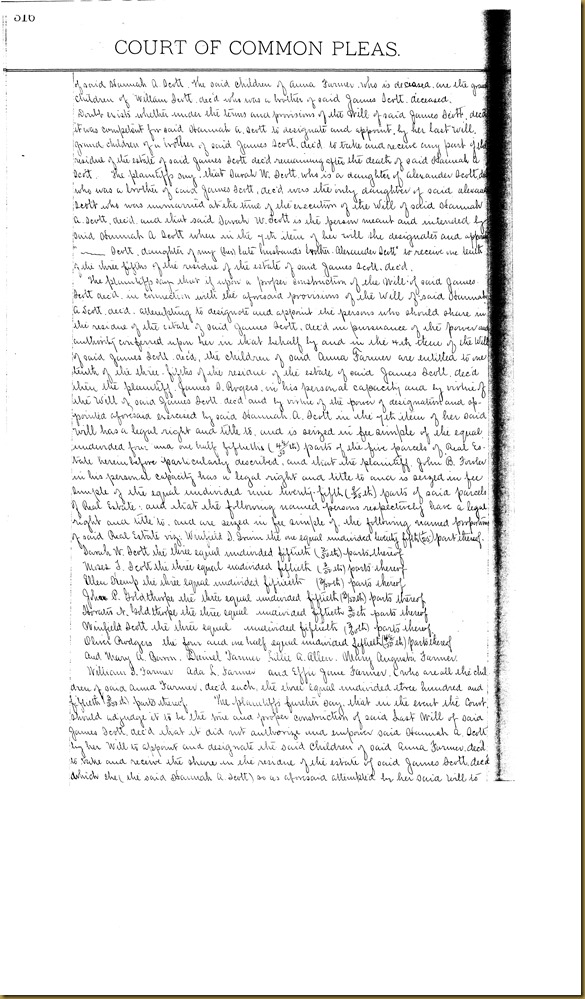 316
COURT OF COMMON PLEAS.
of said Hannah A Scott. The said children of Anna Farmer who is deceased, are the grand
children of William Scott, dec'd who was a brother of said James Scott, deceased.
Doubt exists whether under the terms and provisions of the Will of said James Scott, dec'd
it was competent for said Hannah A. Scott to designate and appoint, by her last will,
grand children of a brother of said James Scott, dec'd to take and receive any part of the
residue of the estate of said James Scott dec'd remaining after the death of said Hannah A
Scott. The plaintiffs say, that Sarah W. Scott, who is a daughter of Alexander Scott,
who was a brother of said James Scott, dec'd was the only daughter of said Alexander
Scott who was unmarried at the time of the execution of the Will of said Hannah
A. Scott, dec'd, and that said Sarah W. Scott is the person meant and intended by
said Hannah A Scott when in the 7th item of her will she designates and appoints
" ___ Scott, daughter of my late husbands brother Alexander Scott" to receive one tenth
of the three fifths of the residue of the estate of said James Scott, dec'd.
The plaintiffs say, that if upon a proper construction of the Will of said James
Scott dec'd, in connection with the aforesaid provisions of the Will of said Hannah
A Scott, dec'd, attempting to designate and appoint the persons who should share in
the residue of the estate of said James Scott, dec'd in pursuance of the power and
authority conferred upon her in that behalf by and in the 4th item of the Will
of said James Scott dec'd, the children of said Anna Farmer are entitled to one
tenth of the three fifths of the residue of the estate of said James Scott, dec'd
then the plaintiff, James S. Rogers, in his personal capacity and by virtue of
the Will of said James Scott dec'd and by virtue of the power of designation and ap-
pointed aforesaid exercised by said Hannah A. Scott in the 7th item of her said
Will has a legal right and title to, and is seized in fee simple of the equal
undivided four and one half fiftieths parts of the five parcels of Real Es-
tate hereinbefore particularly described, and that the plaintiff, John B.
in his personal capacity has a legal right and title to and is seized in fee
simple of the equal undivided nine twenty-fifth parts of said parcels
of Real Estate, and that the following named persons respectively have a legal
right and title to, and are seized in fee simple of the following named proportions
of said Real Estate viz; Winfield S. the one equal undivided twenty fifth part thereof.
Sarah W. Scott the three equal undivided fiftieth (3/50 th) parts thereof
Moses F. Scott the three equal undivided fiftieth (3/50 th) parts thereof
Ellen the three equal undivided fiftieth (3/50 th) parts thereof
John P. Goldthorpe the three equal undivided fiftieth (3/50 th) parts thereof
Horatio N. Goldthorpe the three equal undivided fiftieth 3/50 th parts thereof
Winfield Scott the three equal undivided fiftieth (3/50 th) parts thereof
Oliver Rodgers the four and one half equal undivided fiftieth parts thereof
and Mary A. Daniel Farmer Lillie A. Allen. Mary Augusta Farmer.
William S. Farmer Ada L. Farmer and Effie Jane Farmer, (who are all the chil
dren of said Anna Farmer, dec'd each the three equal undivided three hundred and
fiftieth parts thereof. The plaintiffs further say, that in the event the Court
should adjudge it to be the true and proper construction of said Last Will of said
James Scott, dec'd that it did not authorize and empower said Hannah A. Scott
by her Will to appoint and designate the said Children of said Anna Farmer, dec'd
to take and receive the share in the residue of the estate of said James Scott, dec'd
which she (the said Hannah A Scott) so as aforesaid attempted by her said Will to